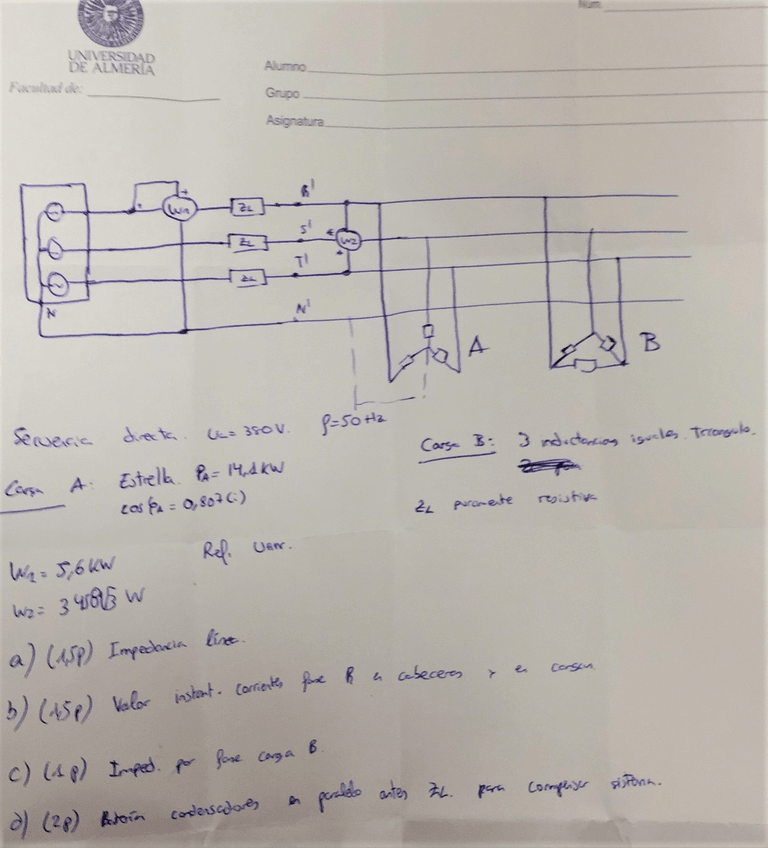 Núm.
UNIVERSIDAD
DE ALMERÍA
Facultad de:
Alumno
Grupo
Asignatura
W1
ZL
R'
ZL
S'
W2
ZL
T'
N
N'
A
B
Secuencia directa. UL = 380V. f=50Hz
Carga A: Estrella. PA = 14,1 kW
cos φA = 0,807 (i)
Carga B: 3 inductancias iguales. Triangulo.
ZL puramente resistiva
W1 = 5,6 KW
Ref. 
W2 = √3 W
a) (1,5p) Impedancia línea.
b) (1,5p) Valor instant. corrientes fase R en cabecera y en cargas
c) (1p) Imped. por fase carga B.
d) (2p) Batería condensadores en paralelo antes ZL para compensar sistema.